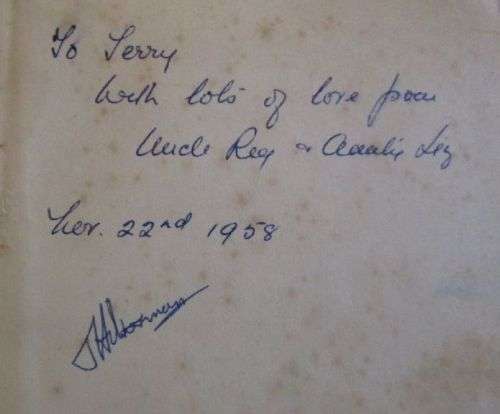 To Terry
With lots of love from
Uncle Reg & Auntie
Nov. 22nd 1958